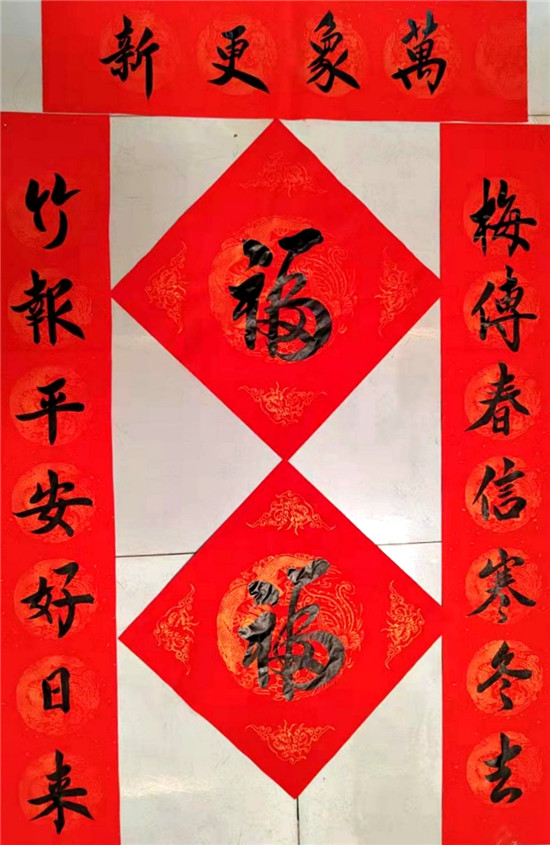 萬象更新
梅傳春信寒冬去
竹報平安好日来
福
福